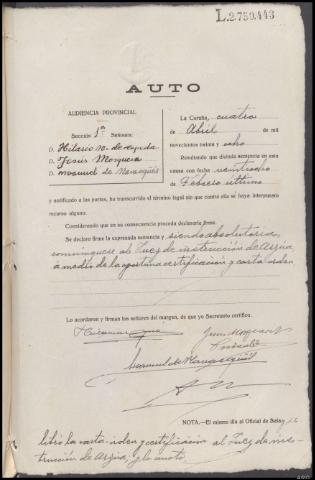 L.2.750.443
AUTO
AUDIENCIA PROVINCIAL
Sección 1ª Señores:
D. Hilario
D. Jesús Mosquera
D. Manuel de
La Coruña, cuatro
de Abril de mil
novecientos treinta y ocho
Resultando que dictada sentencia en esta
causa con fecha veintiocho
de Febrero último
y notificada a las partes, ha transcurrido el término legal sin que contra ella se haya interpuesto
recurso alguno.
Considerando que en su consecuencia procede declararla firme.
Se declara firme la expresada sentencia y siendo absolutoria,
comuníquese al Juez de instrucción de Arzúa
a medio de la oportuna certificación y carta orden
Lo acordaron y firman los señores del margen, de que yo Secretario certifico.
NOTA.—El mismo día el Oficial de Sala
libro la carta-orden y certificación al Juez de ins-
trucción de Arzúa, y lo anoto.